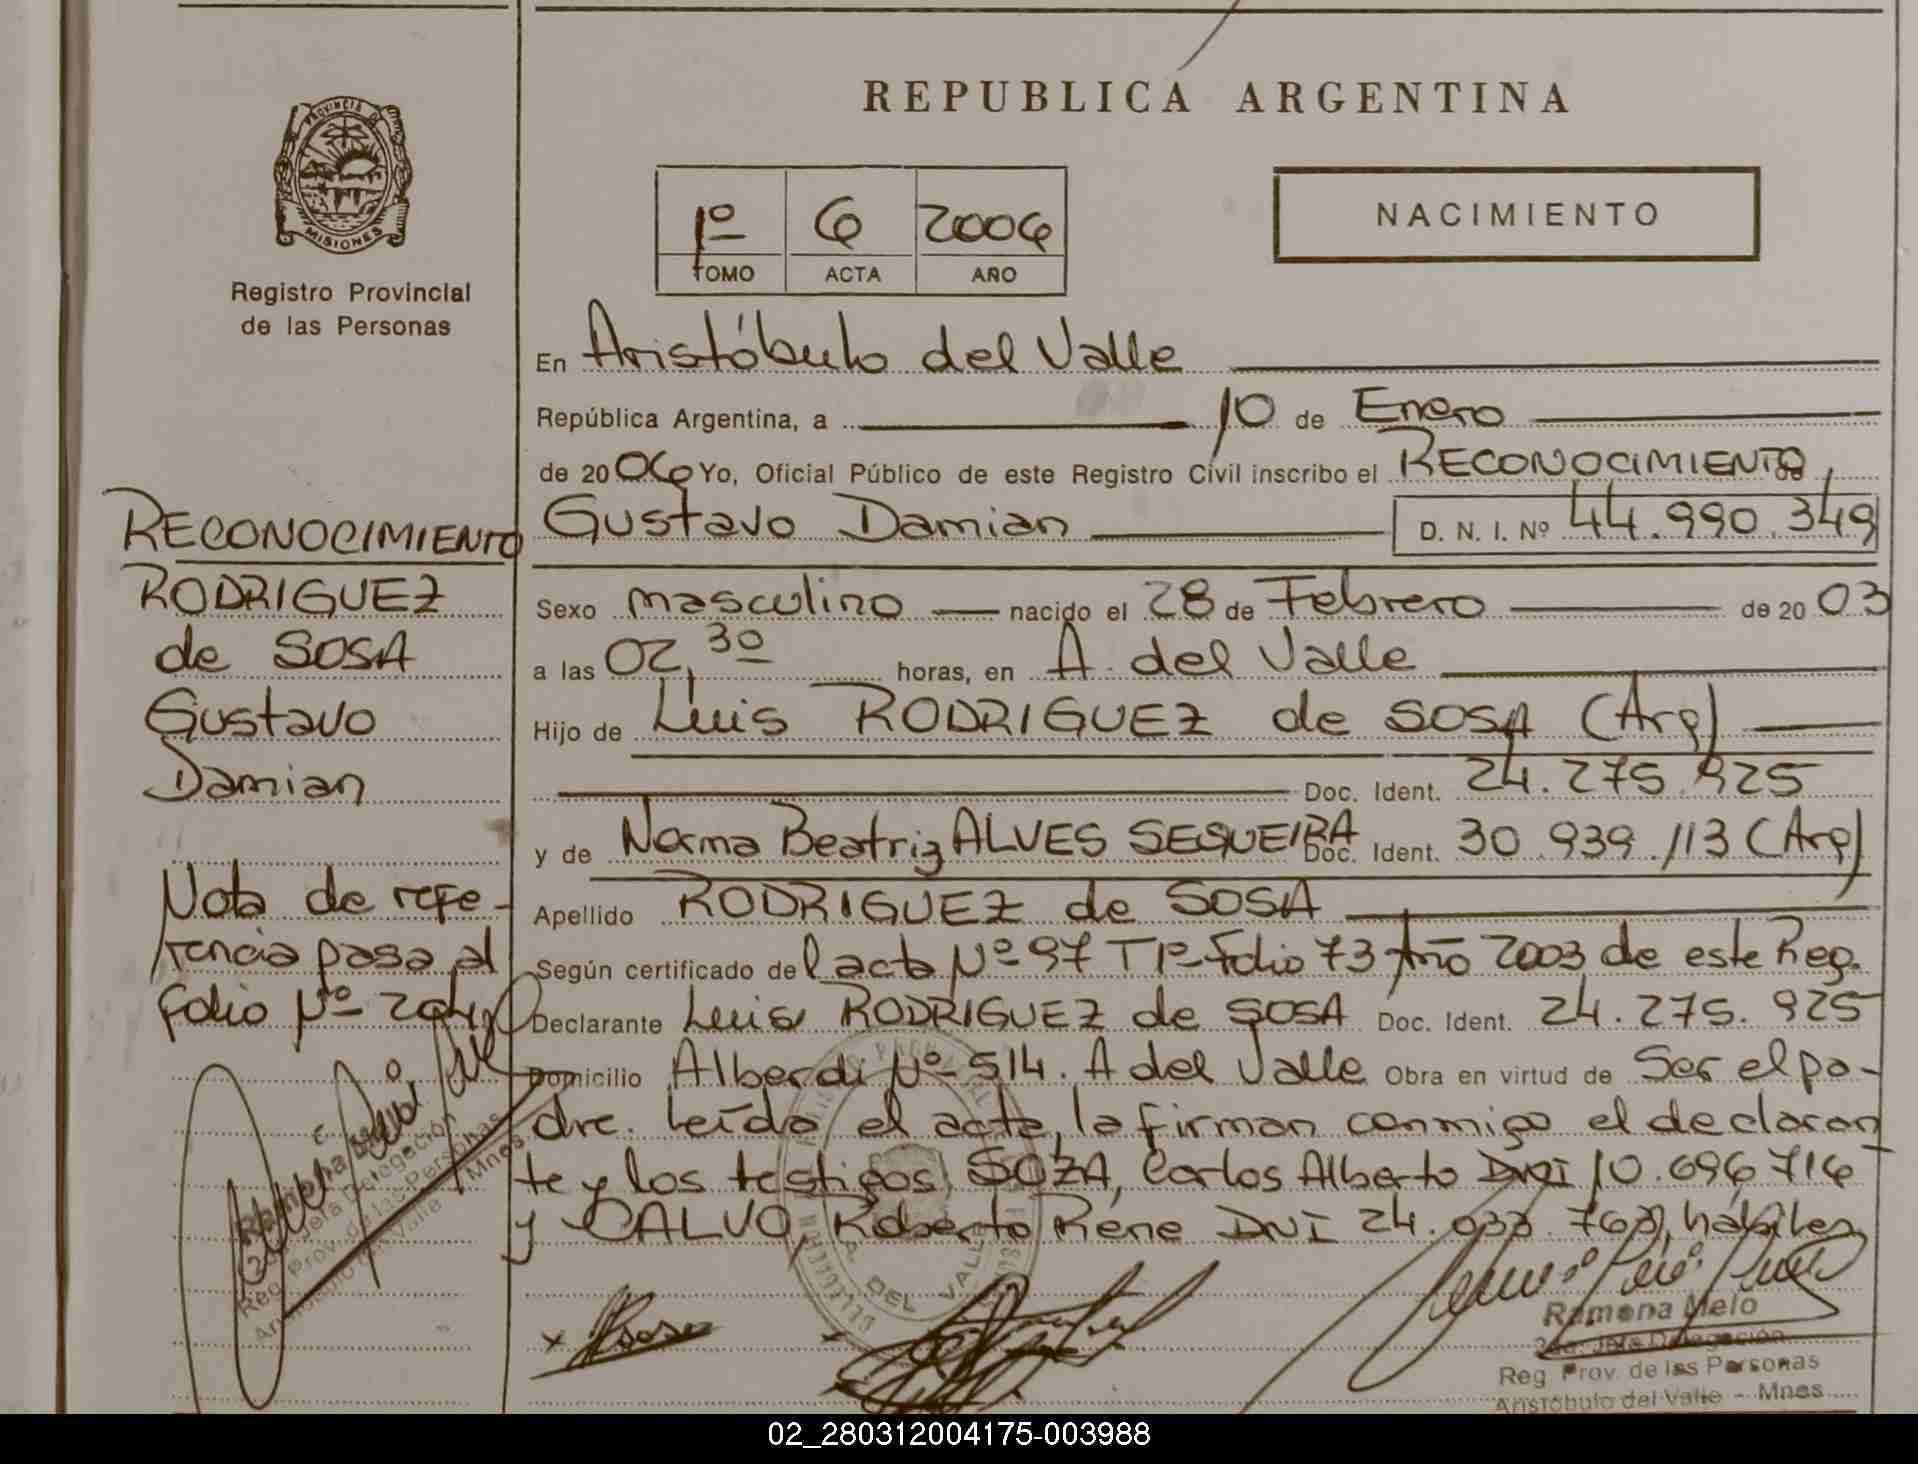 REPUBLICA ARGENTINA
PROVINCIA DE
MISIONES
Registro Provincial
de las Personas
1º 6 2006
TOMO ACTA AÑO
NACIMIENTO
En Aristóbulo del Valle
República Argentina, a 10 de Enero
de 2006 Yo, Oficial Público de este Registro Civil inscribo el RECONOCIMIENTO de
Gustavo Damian D. N. I. Nº 44.990.349
Sexo masculino nacido el 28 de Febrero de 2003
a las 02,30 horas, en A. del Valle
Hijo de Luis RODRIGUEZ de SOSA (Arg)
Doc. Ident. 24.275.925
y de Norma Beatriz ALVES SEQUEIRA Doc. Ident. 30.939.113 (Arg)
Apellido RODRIGUEZ de SOSA
Según certificado del acta Nº 97 T1º Folio 73 Año 2003 de este Reg.
Declarante Luis RODRIGUEZ de SOSA Doc. Ident. 24.275.925
Domicilio Alberdi Nº 514. A del Valle Obra en virtud de Ser el pa-
dre. Leída el acta, la firman conmigo el declaran
te y los testigos, SOZA, Carlos Alberto DNI 10.696.716
y CALVO, Roberto Rene DNI 24.033.763, hábiles
RECONOCIMIENTO
RODRIGUEZ
de SOSA
Gustavo
Damian
Nota de refe-
rencia pasa al
folio Nº 204
Jefa Delegación
Reg. Prov. de las Personas
Aristóbulo del Valle - Mnes
A. DEL VALLE
Ramona Melo
2da. Jefa Delegación
Reg Prov. de las Personas
Aristóbulo del Valle - Mnes
02_280312004175-003988